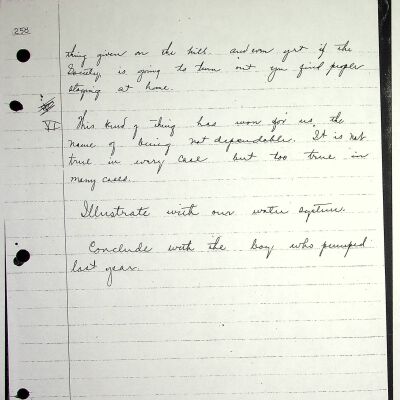 258
thing given on the hill. and even yet if the
Society is going to turn out you find people
staying at home.
VI This kind of thing has won for us the
name of being not dependable. It is not
true in every case but too true in
many cases.
Illustrate with our water system.
Conclude with the boy who pumped
last year.